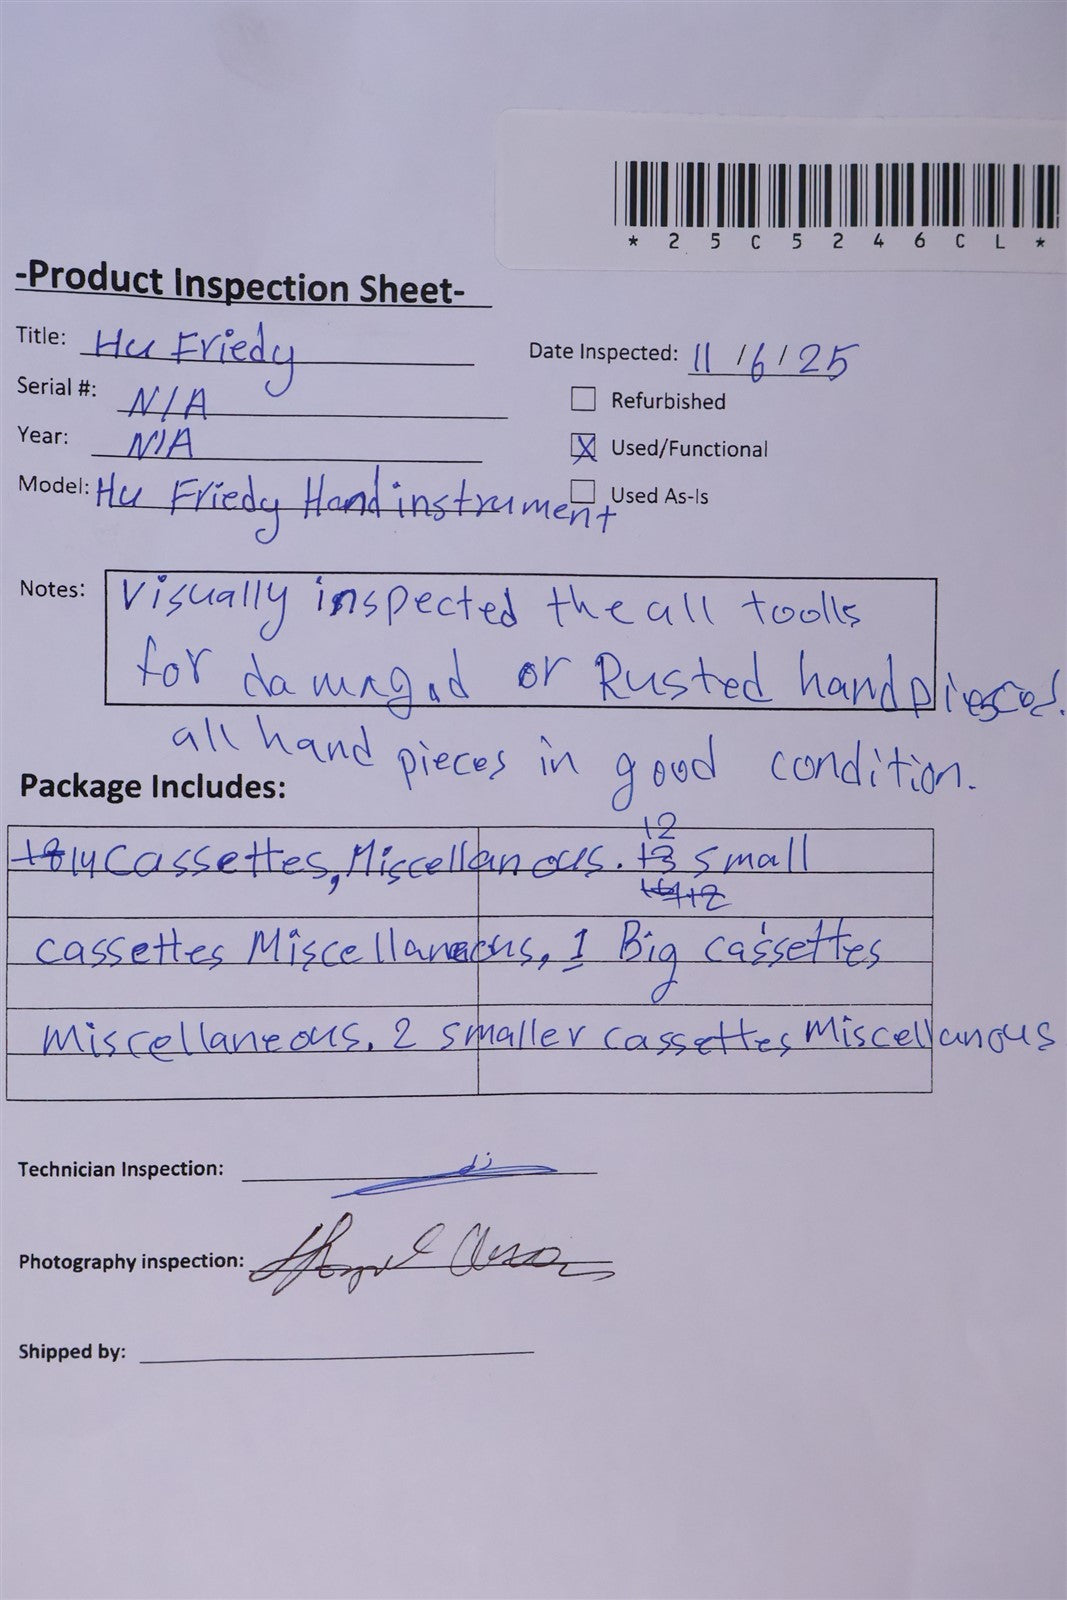 * 2 5 C 5 2 4 6 C L *
-Product Inspection Sheet-
Title: Hu Friedy
Date Inspected: 11 / 6 / 25
Serial #: N/A
Refurbished
Year: N/A
X Used/Functional
Model: Hu Friedy Hand instrument
Used As-Is
Notes: Visually inspected the all toolls
for damagd or Rusted hand
all hand pieces in good condition.
Package Includes:
12
14 Cassettes, Miscellanous. 13 small
cassettes Miscellaneous, 1 Big cassettes
Miscellaneous. 2 smaller cassettes Miscellanous
Technician Inspection:
Photography inspection:
Shipped by: